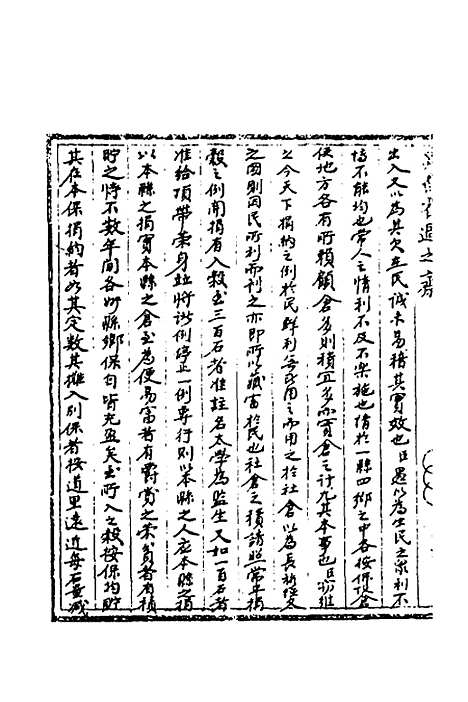 出入又以為其欠在民誠未易稽其實效也臣愚以為士民之樂利不
啻不能均也常人之情利不及不樂施也倘於一縣四鄉之中各按保設倉
使地方各有所賴顧倉多則積宜多而實倉之計尤其本事也臣初維
之今天下捐納之例於民鮮利無民用之而用之於社倉以為長新經久
之因則因民所利而利之亦即所以藏富於民也社倉之積請照常平捐
穀之例開捐有入穀至三百石者准註名太學為監生又如一百石者
准給頂帶榮身並將此例停正一例專行則以本縣之人應本縣之捐
以本縣之捐實本縣之倉至為便易富者有爵賞之榮貧者有積
貯之恃不數年間各州縣鄉保自皆充盈矣至所入之穀按保均貯
其在本保捐納者如其定數其攤入別保者按道里遠近每石量減